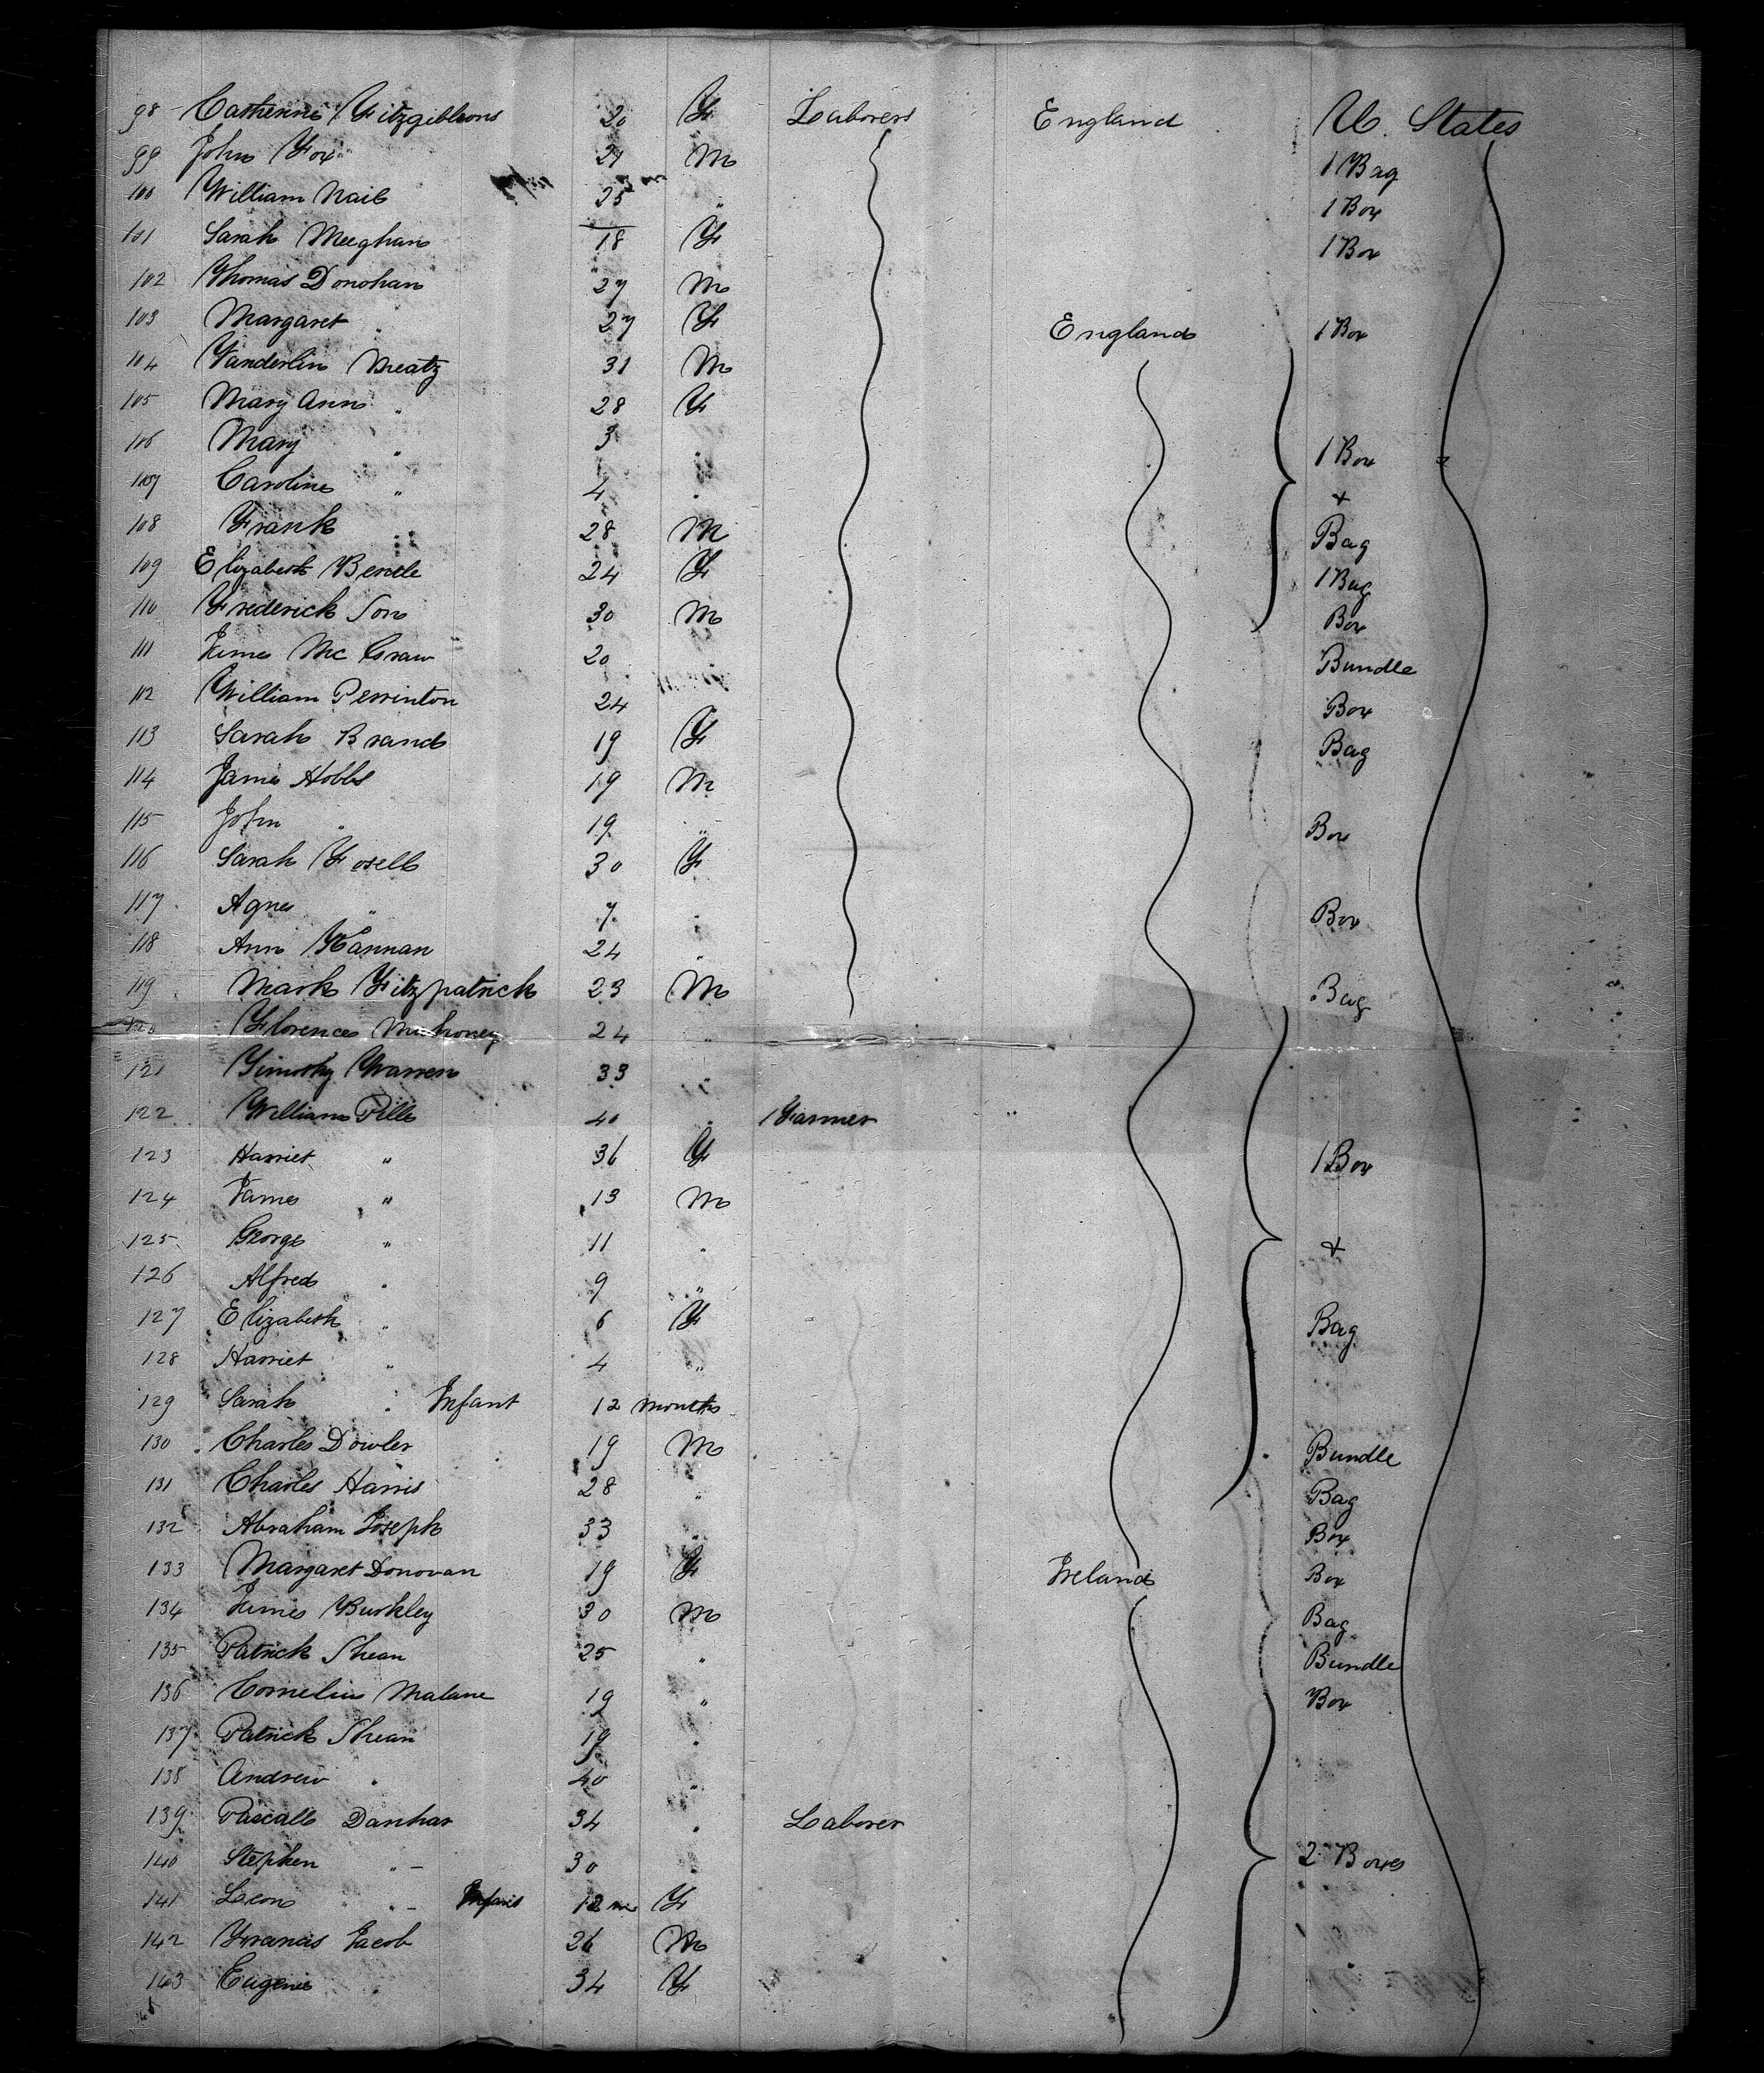 98 Catherine Fitzgibbons 20 F Laborers England U. States
99 John Fox 27 M 1 Bag
100 William Nail 25 " 1 Box
101 Sarah Meeghan 18 F 1 Box
102 Thomas Donohan 27 M
103 Margaret " 27 F England 1 Box
104 Vanderlin Meatz 31 M
105 Mary Ann " 28 F
106 Mary " 3 " 1 Box
107 Caroline " 4 " +
108 Frank " 28 M Bag
109 Elizabeth 24 F 1 Bag
110 Frederick Son 30 M Box
111 James Mc Graw 20 Bundle
112 William Perrinton 24 Box
113 Sarah Brand 19 F Bag
114 James Hobbs 19 M
115 John " 19 " Box
116 Sarah Fosell 30 F
117 Agnes " 7 " Box
118 Ann Hannan 24 "
119 Mark Fitzpatrick 23 M Bag
120 Florence Mahoney 24 "
121 Timothy Warren 33 "
122 William Pill 40 " Farmer "
123 Harriet " 36 F 1 Box
124 James " 13 M
125 George " 11 " +
126 Alfred " 9 "
127 Elizabeth " 6 F Bag
128 Harriet " 4 "
129 Sarah " Infant 12 months
130 Charles Dowler 19 M Bundle
131 Charles Harris 28 " Bag
132 Abraham Joseph 33 " Box
133 Margaret Donovan 19 F Ireland Box
134 James Burkley 30 M Bag
135 Patrick Shean 25 " Bundle
136 Cornelius Malane 19 " Box
137 Patrick Shean 19 "
138 Andrew " 40 "
139 Pascall Danhar 34 " Laborer
140 Stephen " 30 " 2 Boxes
141 Leon " Infant 12 m F
142 Francis Jacob 26 M
143 Eugenie " 34 F